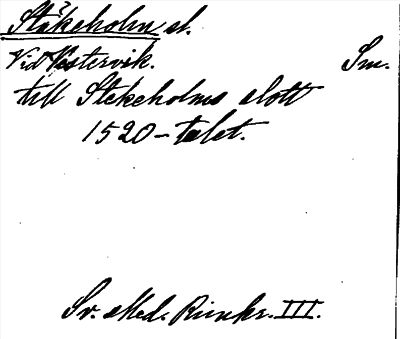 Ståkeholm sl.
Vid Vestervik. Sm.
till Stekeholms slott
1520-talet.
Sv. Med. Rimkr. III.